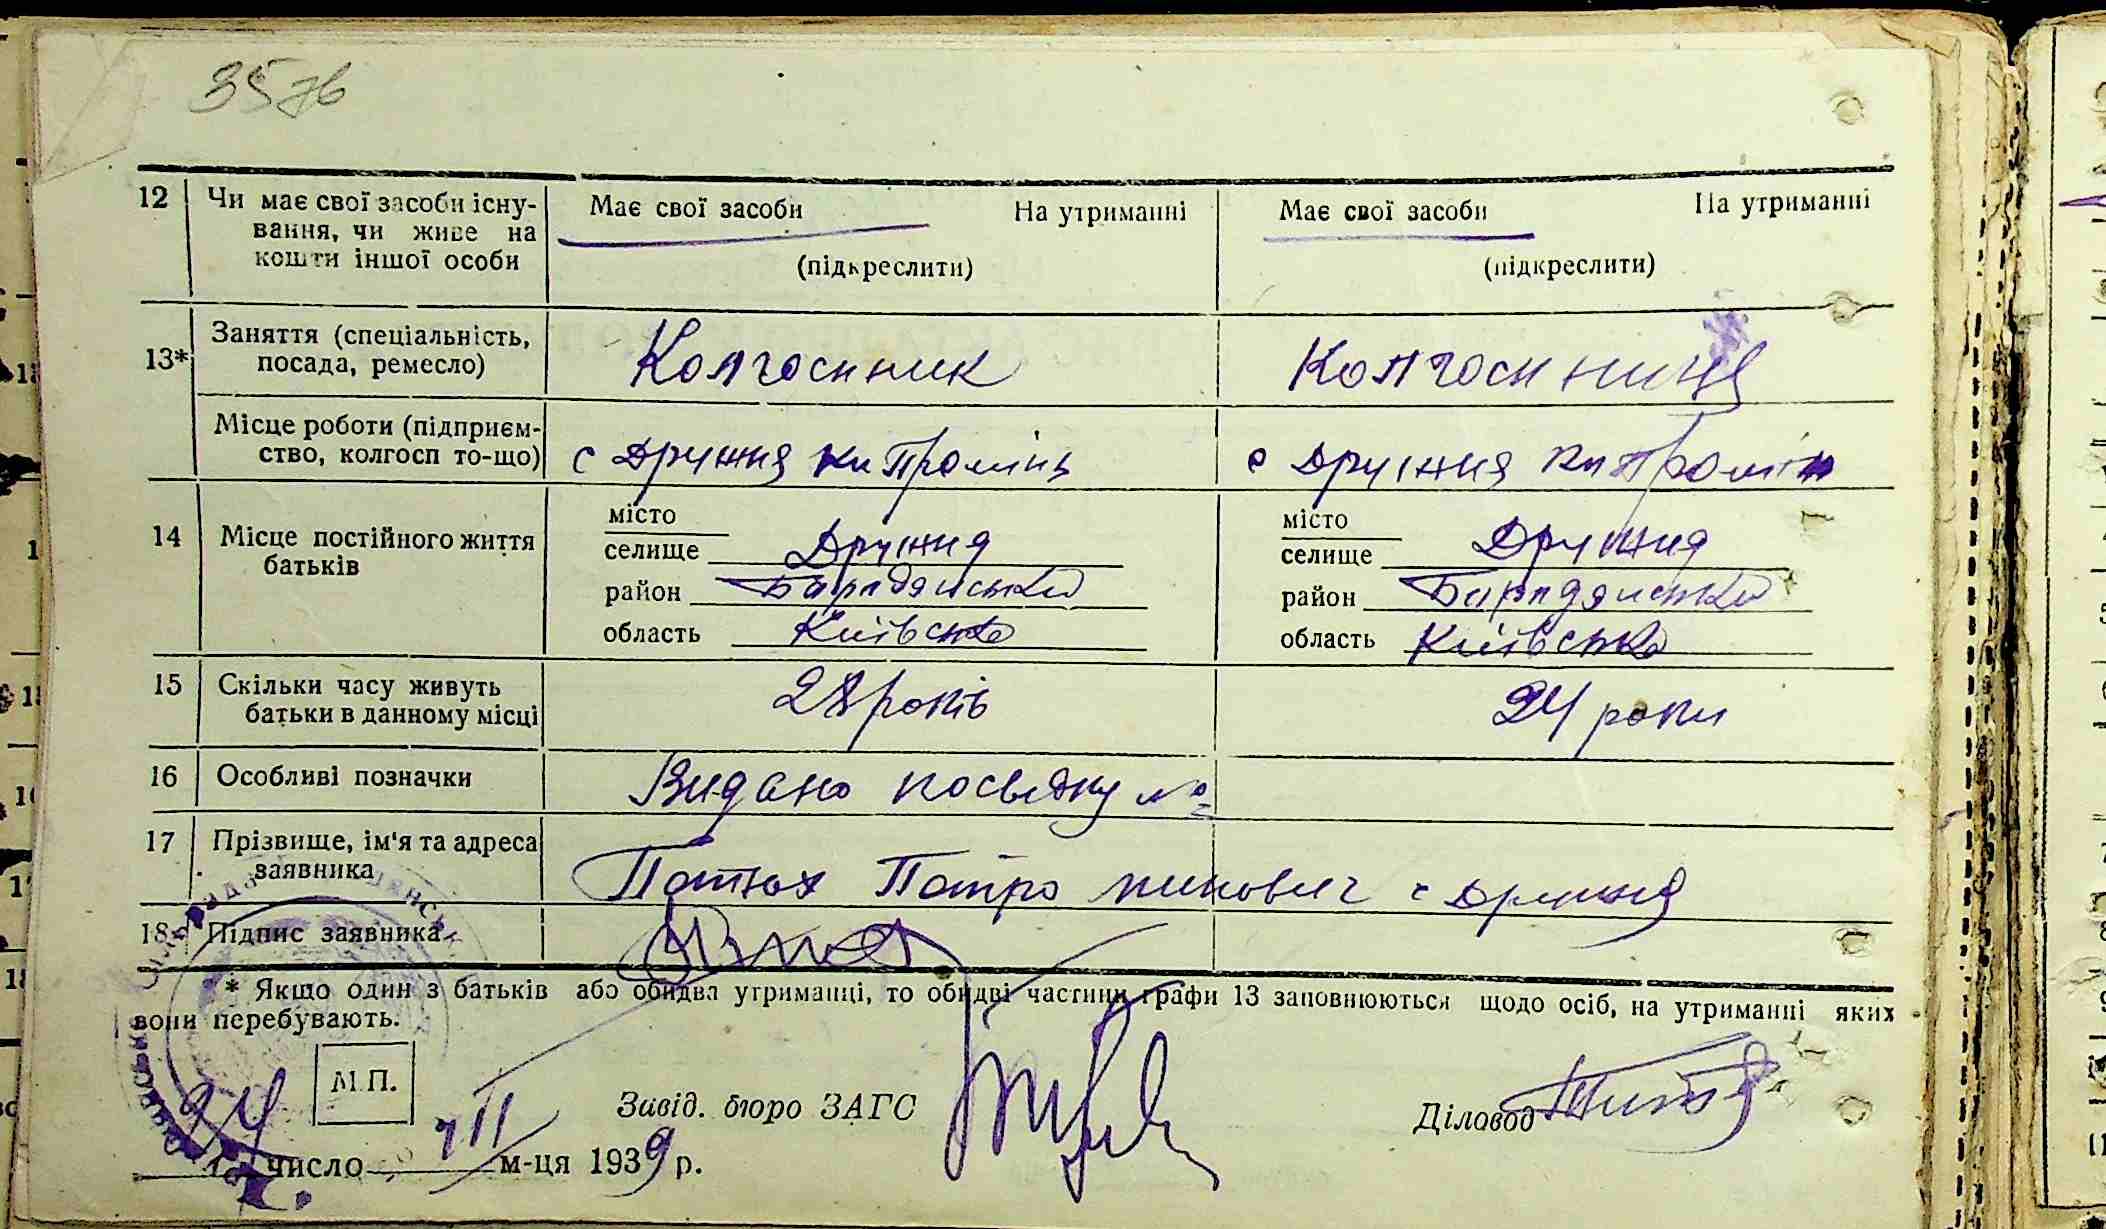 357б
12 Чи має свої засоби існу- Має свої засоби На утриманні Має свої засоби На утриманні
вання, чи живе на
кошти іншої особи (підкреслити) (підкреслити)
13* Заняття (спеціальність, посада, ремесло) Колгоспник Колгоспниця
Місце роботи (підприєм-
ство, колгосп то-що) с Дружня кп Промінь с Дружня кп Промінь
14 Місце постійного життя
батьків
місто місто
селище Дружня селище Дружня
район Бородянський район Бородянський
область Київська область Київська
15 Скільки часу живуть
батьки в данному місці 28 років 24 роки
16 Особливі позначки Видано посвідку №
17 Прізвище, ім'я та адреса
заявника Потюх Петро с Дружня
18 Підпис заявника
* Якщо один з батьків або обидва утриманці, то обидві частини графи 13 заповнюються щодо осіб, на утриманні яких
вони перебувають.
М.П.
Завід. бюро ЗАГС
Діловод
24 число VII м-ця 1939 р.